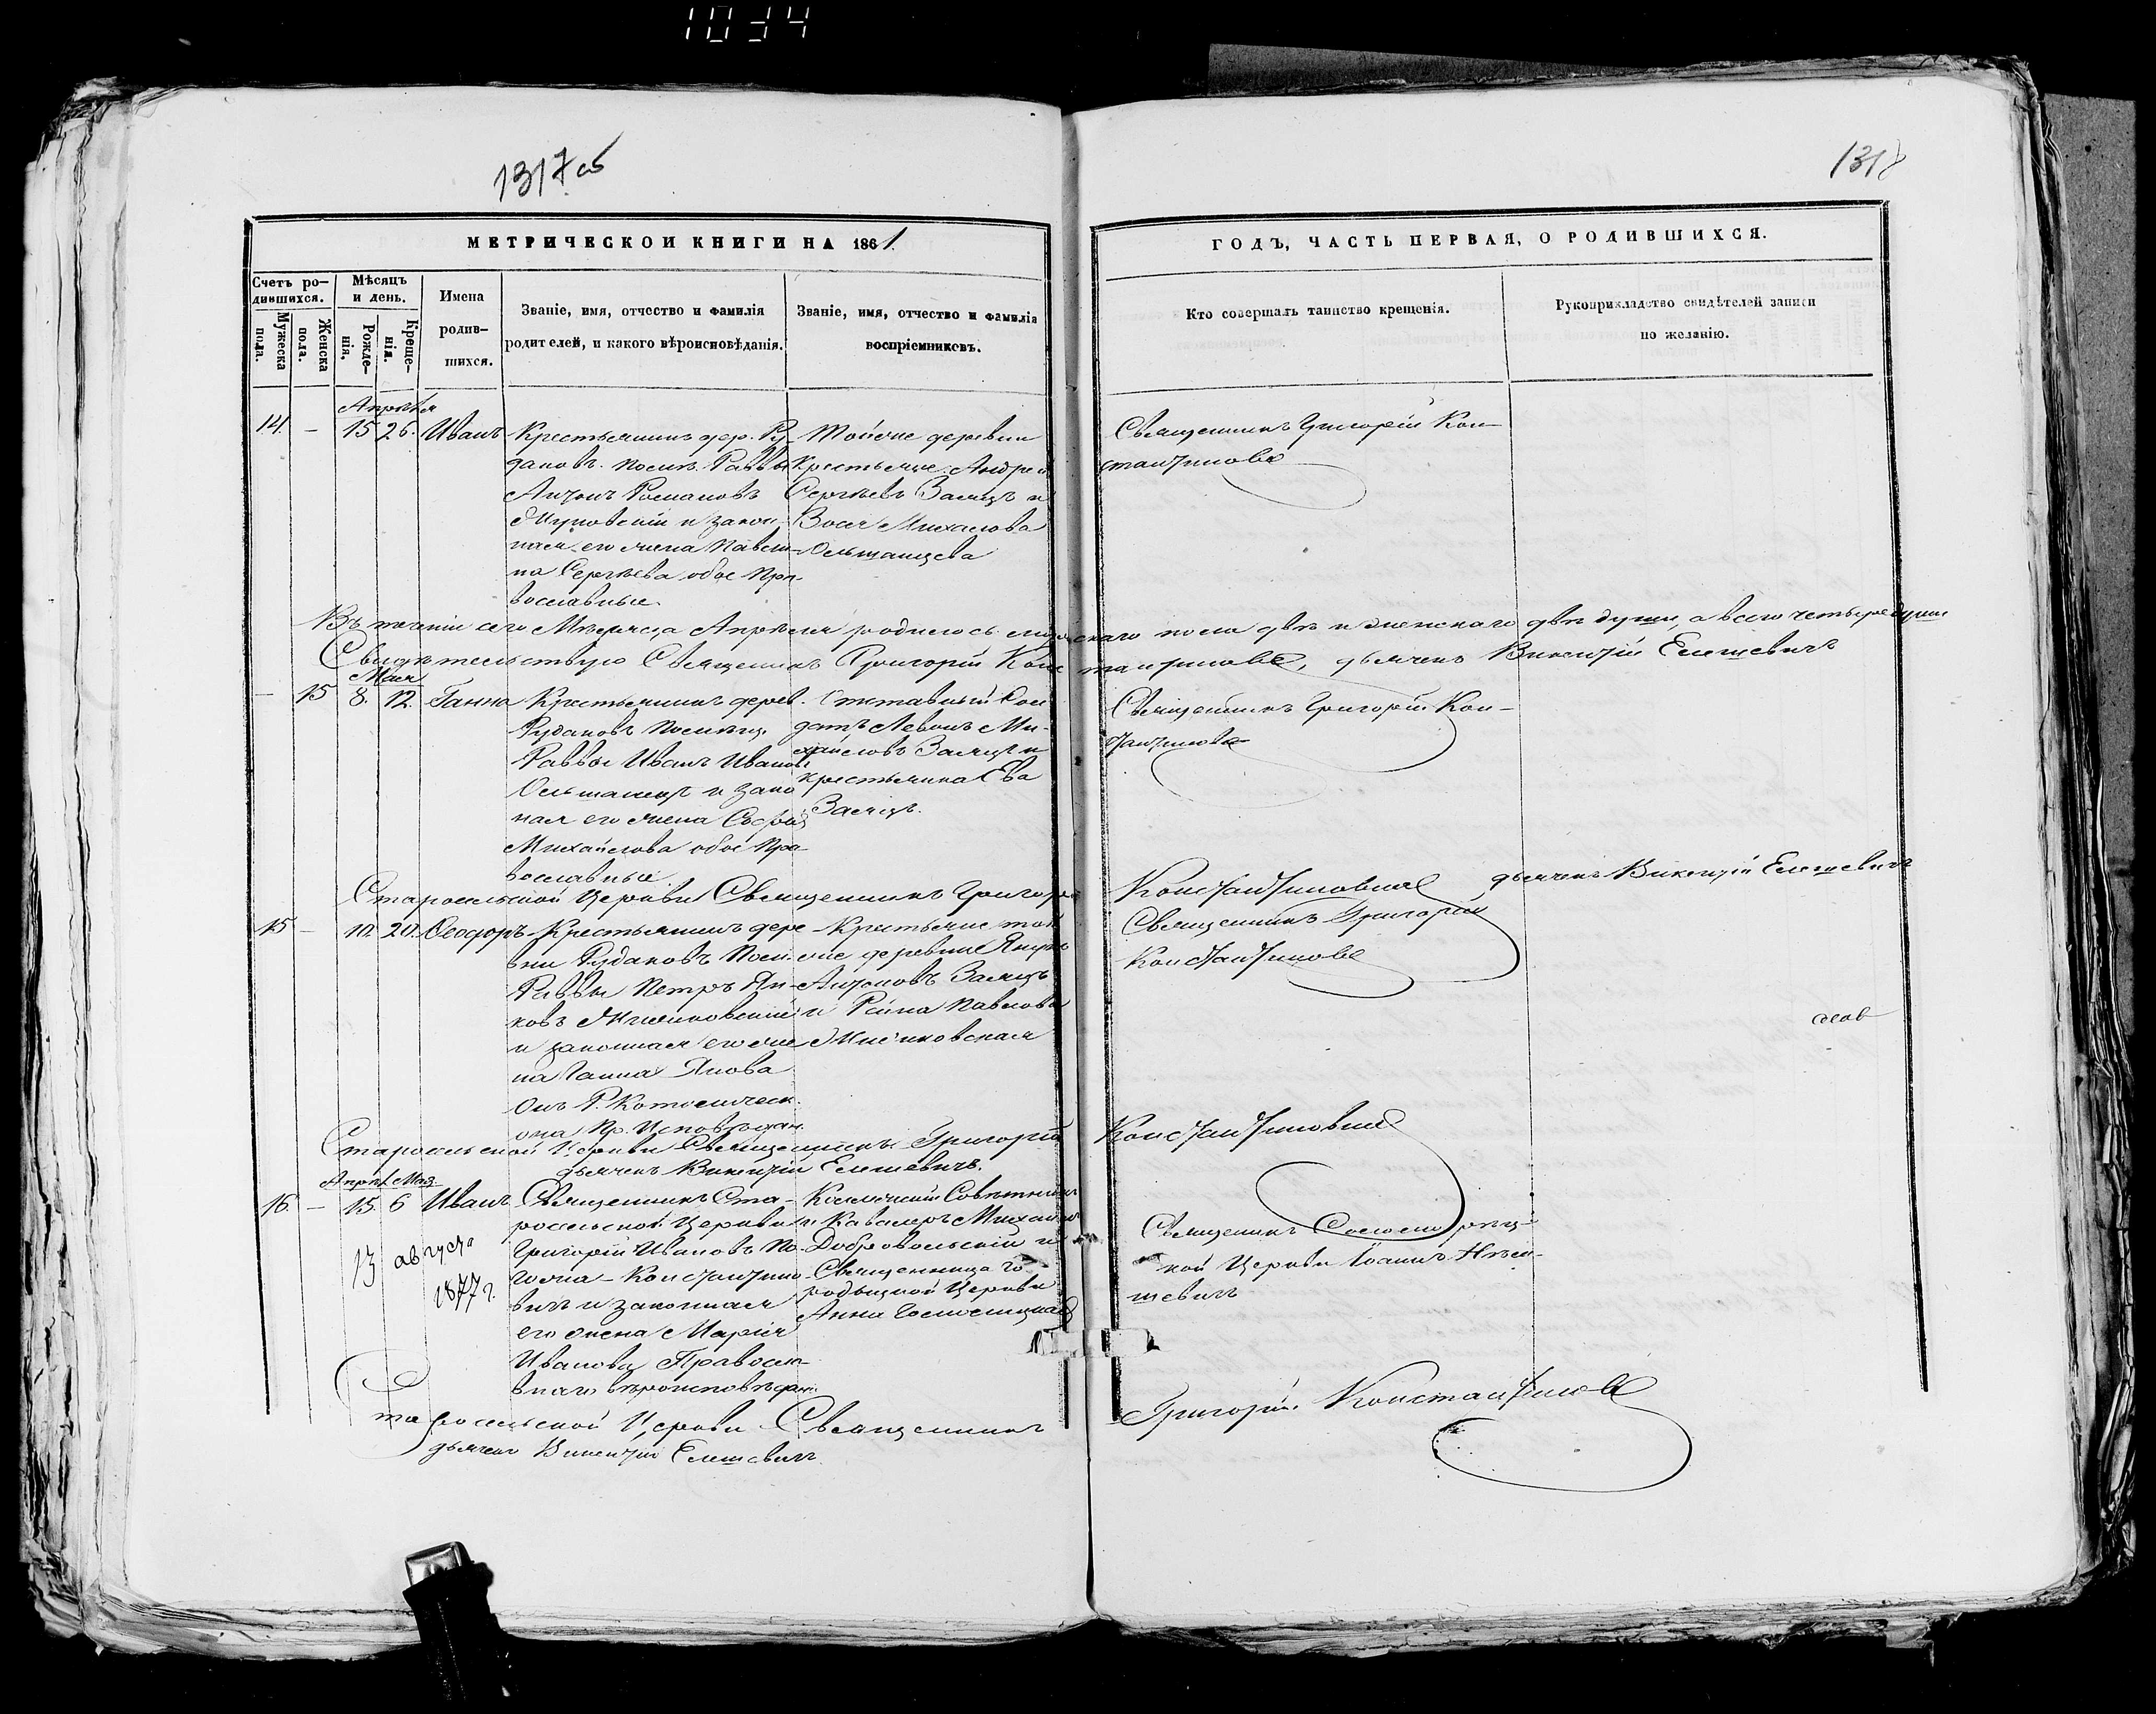 1034
1317 об
1318
МЕТРИЧЕСКОЙ КНИГИ НА 1861
ГОДЪ, ЧАСТЬ ПЕРВАЯ, О РОДИВШИХСЯ.
Счетъ ро-
дившихся.
Мужеска
пола.
Женска
пола.
Мѣсяцъ
и день.
Рожде-
нія.
Креще-
нія.
Имена
родив-
шихся.
Званіе, имя, отчество и фамилія
родителей, и какого вѣроисповѣданія.
Званіе, имя, отчество и фамилія
воспріемниковъ.
Кто совершалъ таинство крещенія.
Рукоприкладство свидѣтелей записи
по желанію.
Апрѣля
14. – 15 26. Иванъ
Крестьянинъ дер. Ру-
даковъ. помѣщ. Раввы
Антонъ Романовъ
и закон-
ная его жена Павли-
на Сергѣева обое Пра-
вославные.
Тойже деревни
Крестьяне Андрей
Сергѣевъ Заяцъ и
Зося Михалова
Ольшанцева
Священникъ Григорій Кон-
стантиновъ
Въ теченіи сего Мѣсяца Апрѣля родилось мужскаго пола двѣ и женскаго двѣ души, а всего четыре души
Свидѣтельствую Священникъ Григорій Константиновъ, дьячекъ Викентій Елешевичъ
Мая
– 15 8. 12. Ганна
Крестьянинъ дерев.
Рудаковъ Помѣщ.
Раввы Иванъ Ивановъ
Ольшанецъ и зако
ная его жена Софія
Михайлова обое Пра-
вославные.
Отставный Сол
датъ Левонъ Ми-
хайловъ Заяцъ и
крестьянка Ева
Заяцъ.
Священникъ Григорій Кон-
стантиновъ
Старосельской Церкви Священникъ Григорій
Константиновичъ дьячекъ Викентій Елешевичъ
15 – 10. 20. Феодоръ
Крестьянинъ дере
вни Рудаковъ Пом.
Раввы Петръ Ян-
ковъ
и законная его же
на Ганна Янова
Онъ Р. Католическ.
она Пр. Исповѣдан.
Крестьяне той
же деревни
Антоновъ Заяцъ
и Павлова
Священникъ Григорій
Константиновъ
Старосельской Церкви Священникъ Григорій
Константиновичъ
дьячекъ Викентій Елешевичъ.
Апрѣл. Мая
16. – 15. 6 Иванъ
13 августа
1877 г.
Священникъ Ста-
росельской Церкви
Григорій Ивановъ По-
гожа-Константино
вичъ и законная
его жена Марія
Иванова Правосла-
внаго вѣроисповѣдан.
Совѣтникъ
и Кавалеръ Михаилъ
Добровольскій и
Священница Го
родыщной Церкви
Анна
Священникъ
кой Церкви Іоаннъ
шевичъ
Старосельской Церкви Священникъ
Григорій Константиновъ
дьячекъ Викентій Елешевичъ